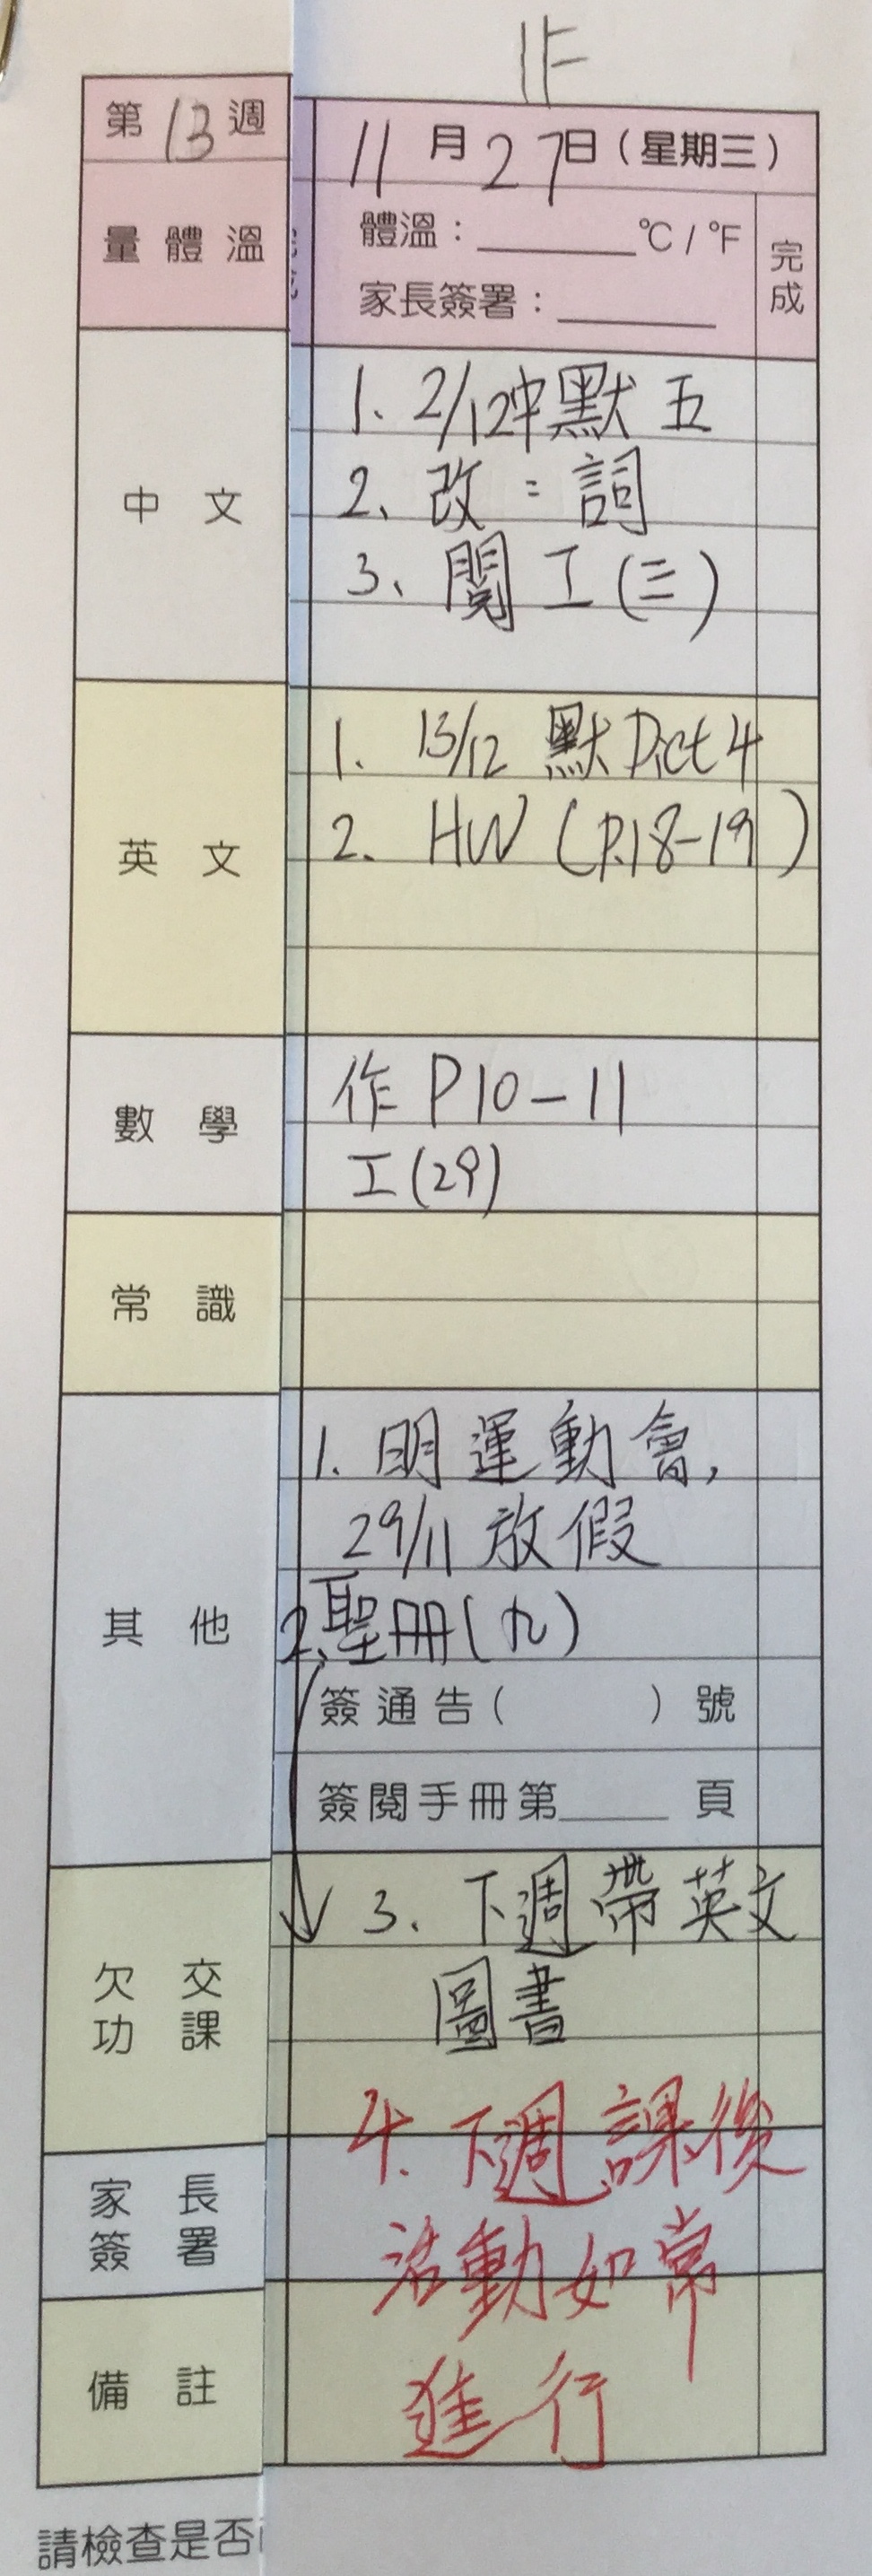 1F
第13週
11月27日（星期三）
量體溫
體溫：______°C / °F
完成
家長簽署：______
中文
1. 2/12 中默五
2. 改：詞
3. 閱工(三)
英文
1. 13/12 默Dict 4
2. HW (P.18-19)
數學
作P10-11
工(29)
常識
其他
1. 明運動會,
29/11 放假
2. 聖冊(九)
簽通告（ ）號
簽閱手冊第____頁
欠交功課
3. 下週帶英文
圖書
家長簽署
4. 下週課後
活動如常
備註
進行
請檢查是否